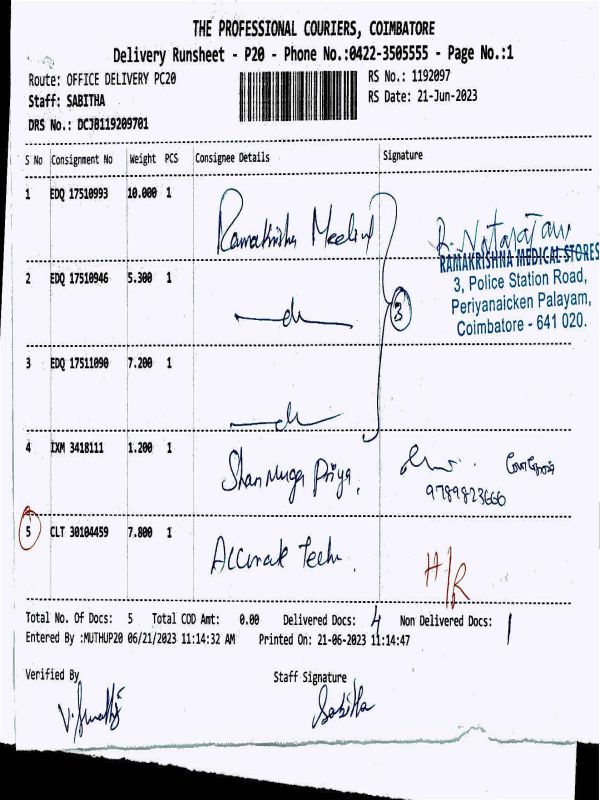 THE PROFESSIONAL COURIERS, COIMBATORE
Delivery Runsheet - P20 - Phone No.:0422-3505555 - Page No.:1
Route: OFFICE DELIVERY PC20
RS No.: 1192097
Staff: SABITHA
RS Date: 21-Jun-2023
DRS No.: DCJB119209701
S No Consignment No Weight PCS Consignee Details Signature
1 EDQ 17510993 10.000 1 Ramakrishna Medical R. Natarajan
RAMAKRISHNA MEDICAL STORES
3, Police Station Road,
Periyanaicken Palayam,
Coimbatore - 641 020.
2 EDQ 17510946 5.300 1 do 3
3 EDQ 17511090 7.200 1 do
4 IXM 3418111 1.200 1 Shanmuga Priya.
9789823666
5 CLT 30104459 7.800 1 Accurate Tech. H/R
Total No. Of Docs: 5 Total COD Amt: 0.00 Delivered Docs: 4 Non Delivered Docs: 1
Entered By :MUTHUP20 06/21/2023 11:14:32 AM Printed On: 21-06-2023 11:14:47
Verified By Staff Signature
Sabitha